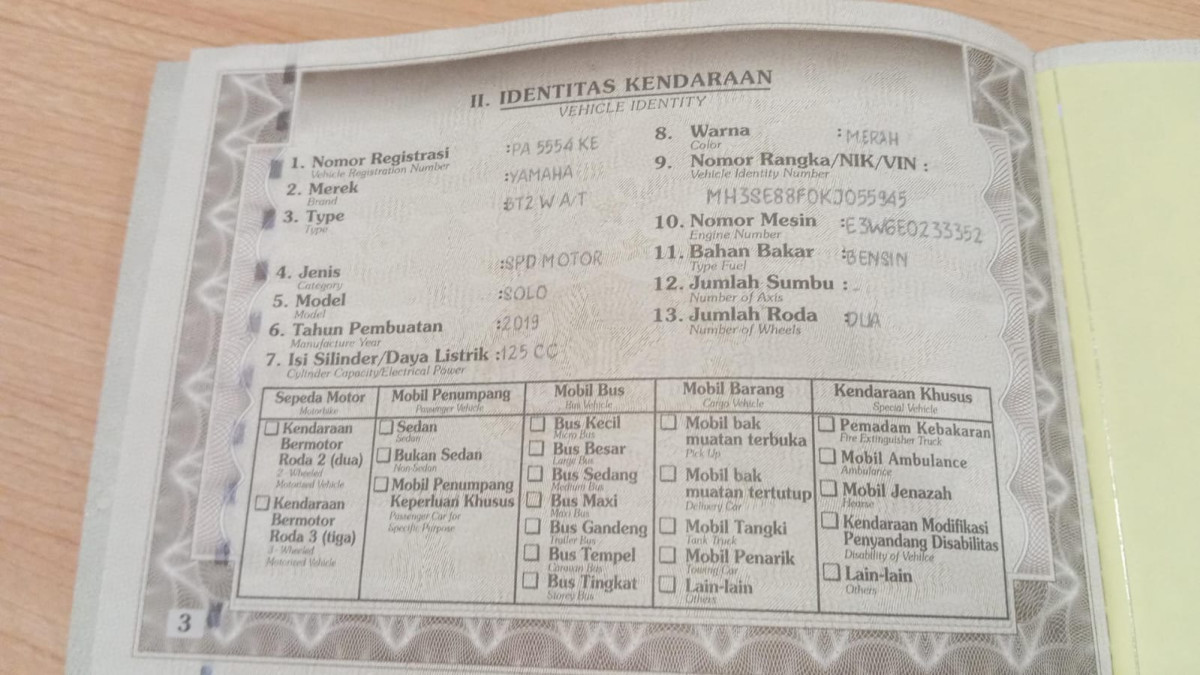 II. IDENTITAS KENDARAAN
VEHICLE IDENTITY
1. Nomor Registrasi :PA 5554 KE
Vehicle Registration Number
2. Merek :YAMAHA
Brand
3. Type :BT2 W A/T
Type
4. Jenis :SPD MOTOR
Category
5. Model :SOLO
Model
6. Tahun Pembuatan :2019
Manufacture Year
7. Isi Silinder/Daya Listrik :125 CC
Cylinder Capacity/Electrical Power
8. Warna :MERAH
Color
9. Nomor Rangka/NIK/VIN :
Vehicle Identity Number
MH3SE88F0KJ055945
10. Nomor Mesin :E3W6E0233352
Engine Number
11. Bahan Bakar :BENSIN
Type Fuel
12. Jumlah Sumbu :-
Number of Axis
13. Jumlah Roda :DUA
Number of Wheels
Sepeda Motor
Motorbike
Kendaraan
Bermotor
Roda 2 (dua)
2 - Wheeled
Motorized Vehicle
Kendaraan
Bermotor
Roda 3 (tiga)
3 - Wheeled
Motorized Vehicle
Mobil Penumpang
Passenger Vehicle
Sedan
Sedan
Bukan Sedan
Non-Sedan
Mobil Penumpang
Keperluan Khusus
Passenger Car for
Specific Purpose
Mobil Bus
Bus Vehicle
Bus Kecil
Micro Bus
Bus Besar
Large Bus
Bus Sedang
Medium Bus
Bus Maxi
Maxi Bus
Bus Gandeng
Trailer Bus
Bus Tempel
Caravan Bus
Bus Tingkat
Storey Bus
Mobil Barang
Cargo Vehicle
Mobil bak
muatan terbuka
Pick Up
Mobil bak
muatan tertutup
Delivery Car
Mobil Tangki
Tank Truck
Mobil Penarik
Towing Car
Lain-lain
Others
Kendaraan Khusus
Special Vehicle
Pemadam Kebakaran
Fire Extinguisher Truck
Mobil Ambulance
Ambulance
Mobil Jenazah
Hearse
Kendaraan Modifikasi
Penyandang Disabilitas
Disability of Vehilce
Lain-lain
Others
3